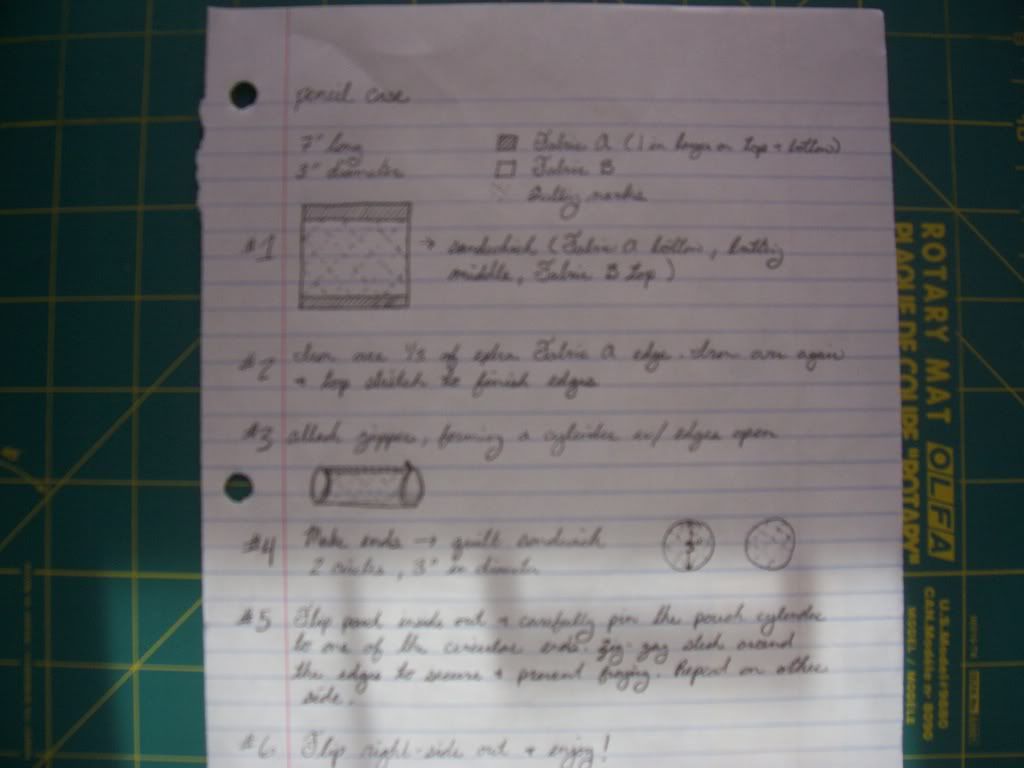 pencil case
7" long
3" diameter
Fabric A (1 in longer on top + bottom)
Fabric B
Quilting marks
#1 → sandwich (Fabric A bottom, batting
middle, Fabric B top)
#2 Iron over 1/2 of extra Fabric A edge. Iron over again
+ top stitch to finish edges
#3 attach zipper, forming a cylinder w/ edges open
#4 Make ends → quilt sandwich
2 circles, 3" in diameter
3"
#5 Flip pouch inside out + carefully pin the pouch cylinder
to one of the circular ends. Zig-zag stitch around
the edges to secure + prevent fraying. Repeat on other
side.
#6. Flip right-side out + enjoy!
ROTARY MAT OLFA
PLAQUE DE COUPE "ROTARY"
U.S. Model
CAN. Modèle nº
MODEL / MODELE